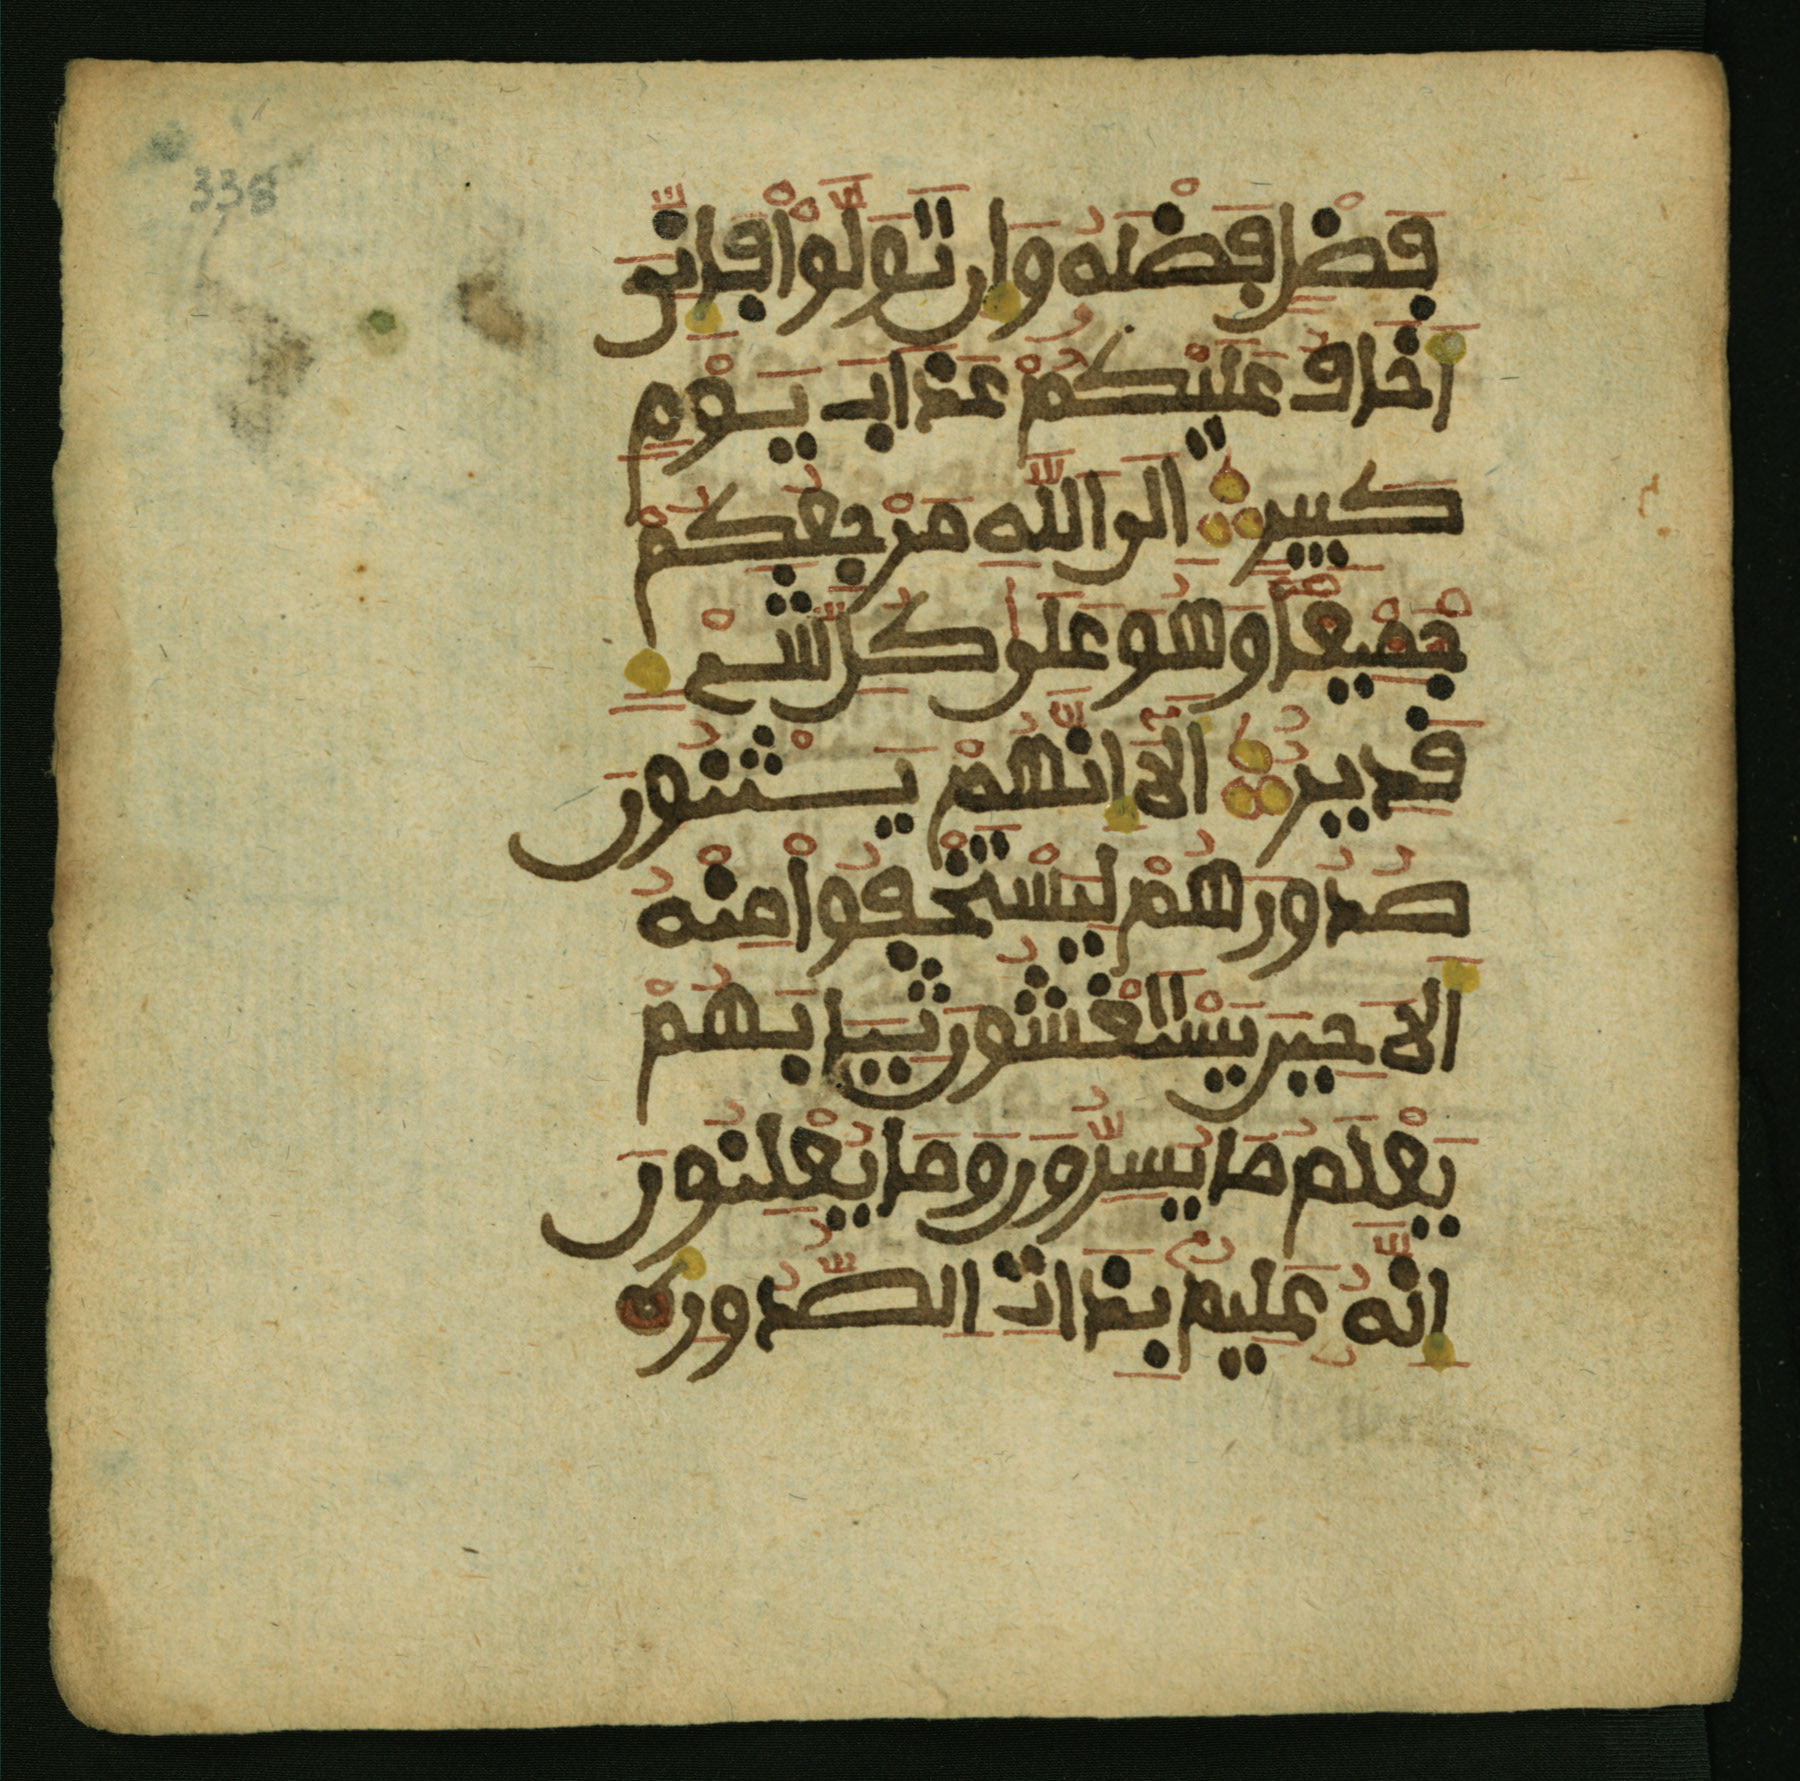 338
فَضْلٍ فَضْلَهُ وَإِن تَوَلَّوْا فَإِنِّي
أَخَافُ عَلَيْكُمْ عَذَابَ يَوْمٍ
كَبِيرٍ إِلَى اللَّهِ مَرْجِعُكُمْ
جَمِيعًا وَهُوَ عَلَى كُلِّ شَيْءٍ
قَدِيرٌ أَلَا إِنَّهُمْ يَثْنُونَ
صُدُورَهُمْ لِيَسْتَخْفُوا مِنْهُ
أَلَا حِينَ يَسْتَغْشُونَ ثِيَابَهُمْ
يَعْلَمُ مَا يُسِرُّونَ وَمَا يُعْلِنُونَ
إِنَّهُ عَلِيمٌ بِذَاتِ الصُّدُورِ